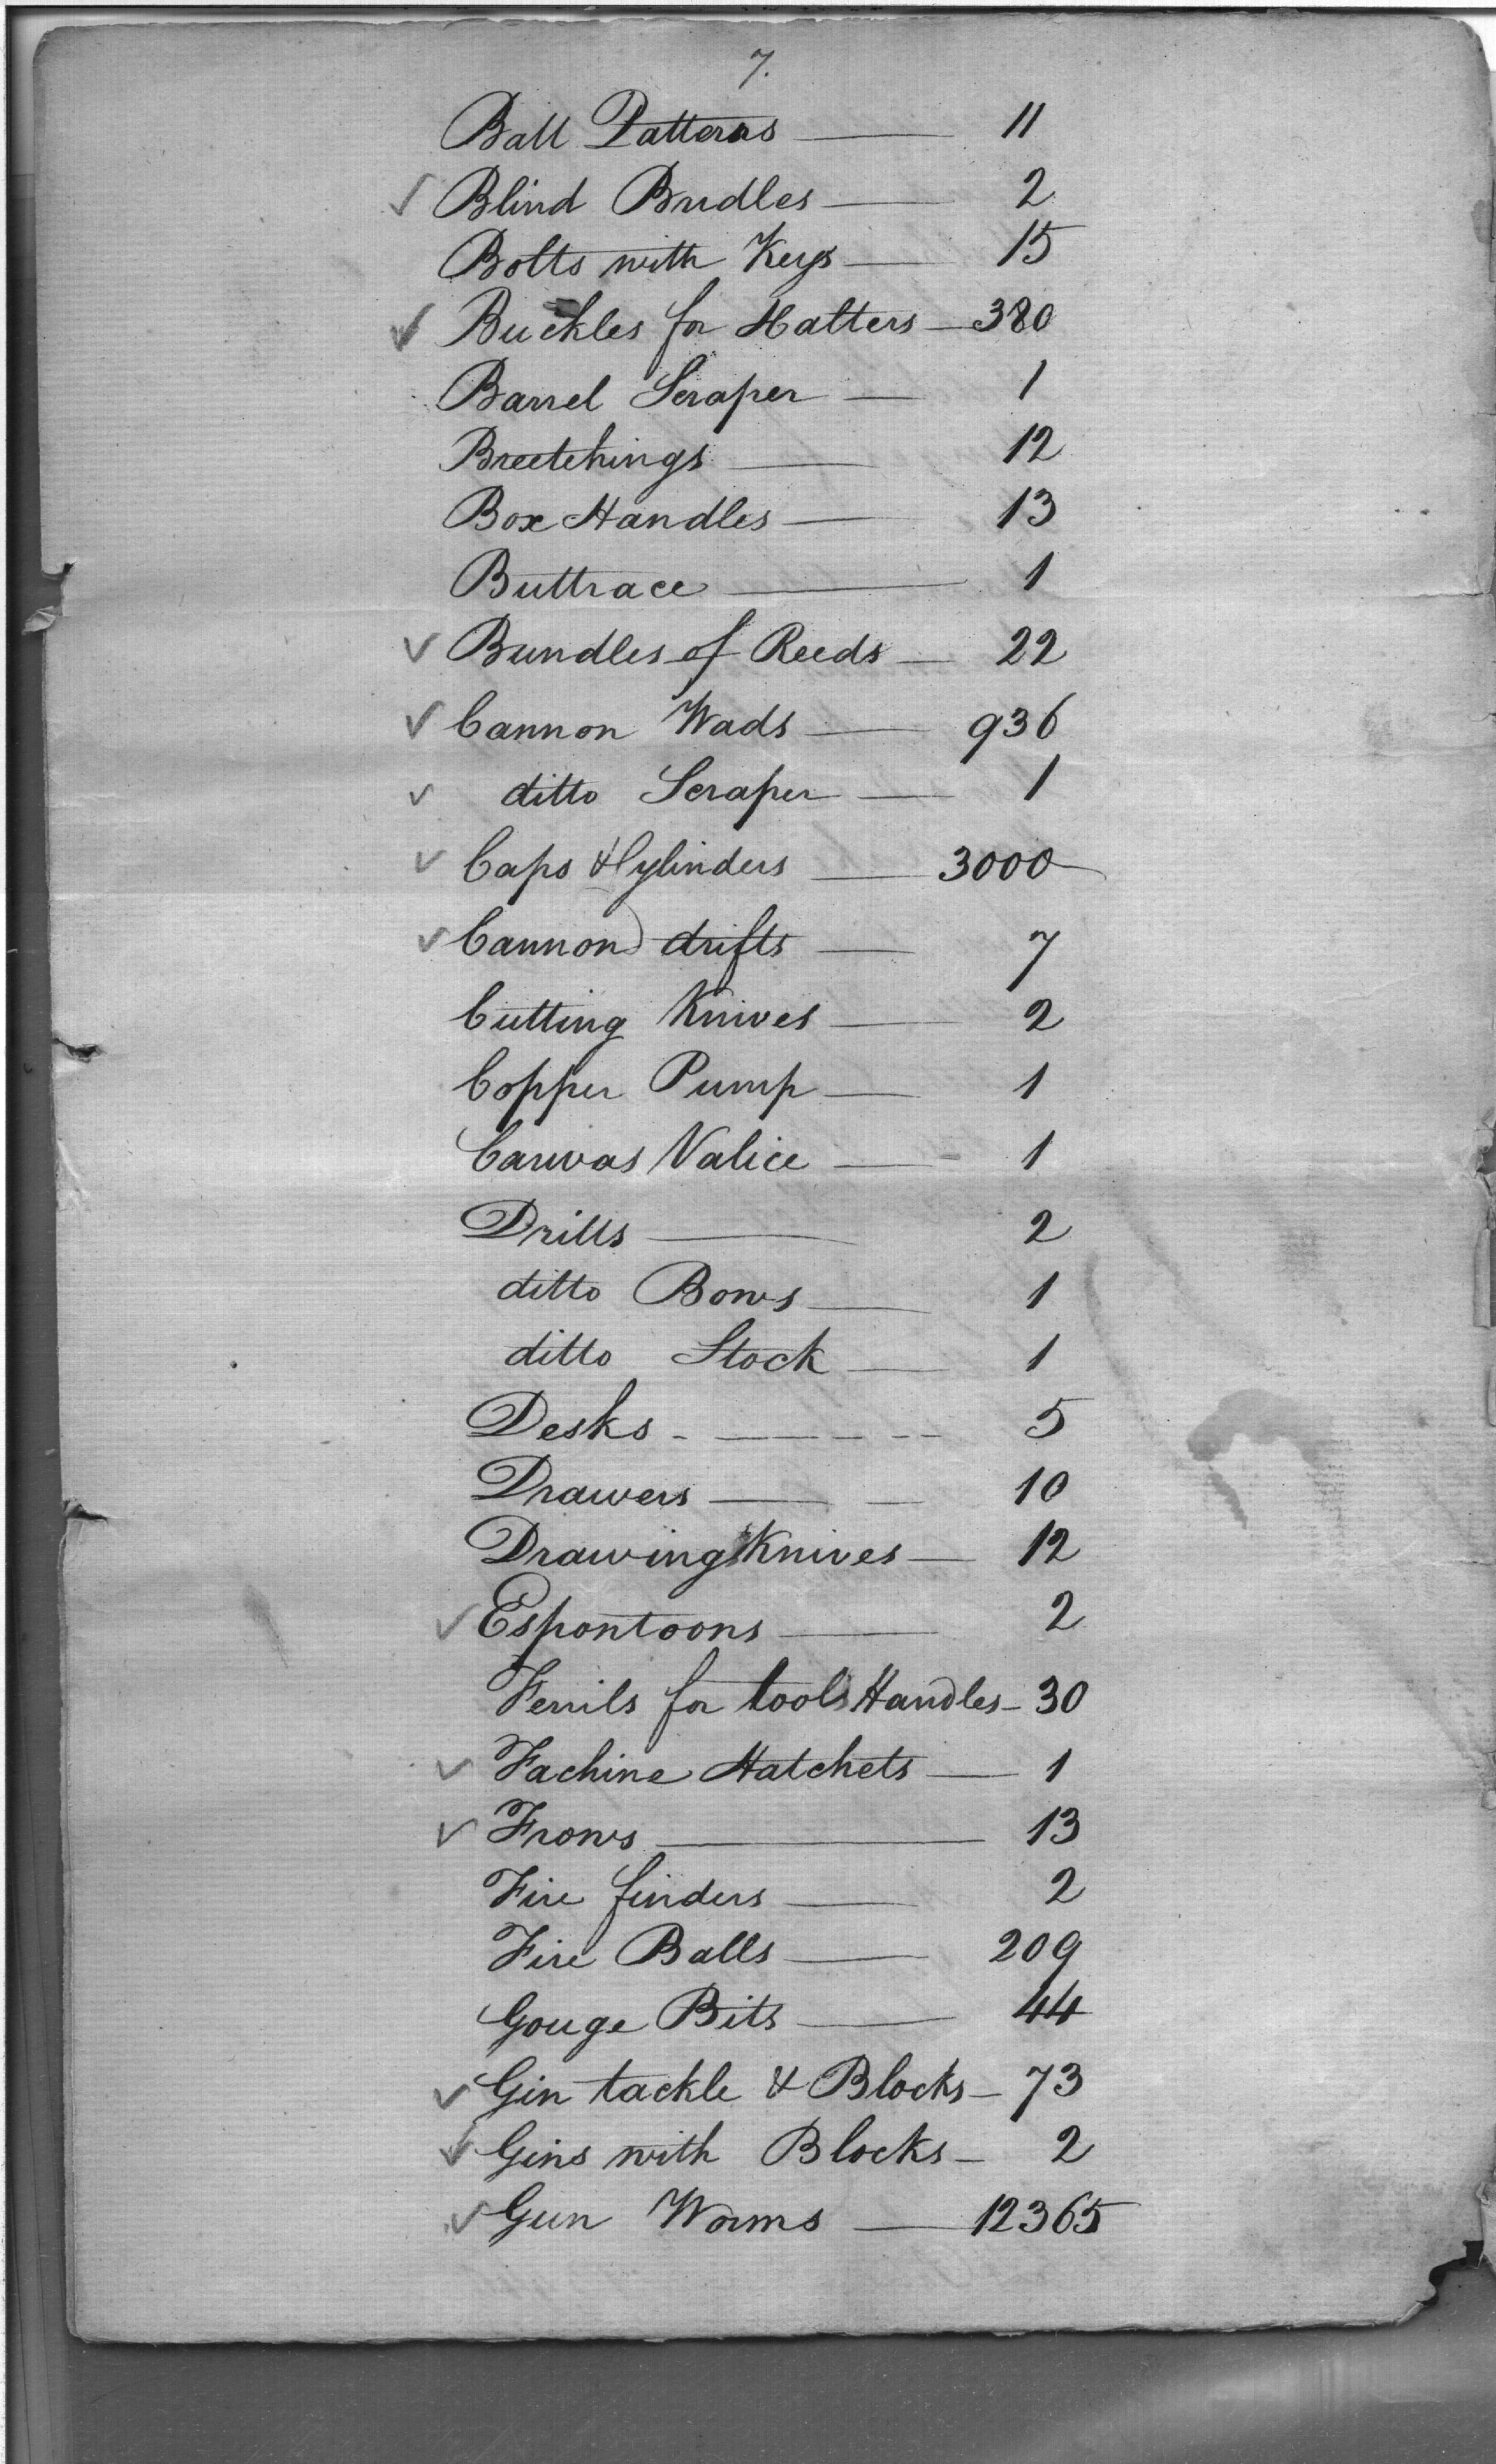 7.
Ball Patterns — 11
✓ Blind Bridles — 2
Bolts with Keys — 15
✓ Buckles for Halters — 380
Barrel Scraper — 1
Breetchings — 12
Box Handles — 13
Buttrace — 1
✓ Bundles of Reeds — 22
✓ Cannon Wads — 936
✓ ditto Scraper — 1
✓ Caps & Cylinders — 3000
✓ Cannon drifts — 7
Cutting Knives — 2
Copper Pump — 1
Canvas Valice — 1
Drills — 2
ditto Bows — 1
ditto Stock — 1
Desks - — - - - 5
Drawers — — 10
Drawing Knives — 12
✓ Espontoons — 2
Ferrils for tools Handles — 30
✓ Fachine Hatchets — 1
✓ Frows — 13
Fire finders — 2
Fire Balls — 209
Gouge Bits — 44
✓ Gin tackle & Blocks — 73
✓ Gins with Blocks — 2
✓ Gun Worms — 12365